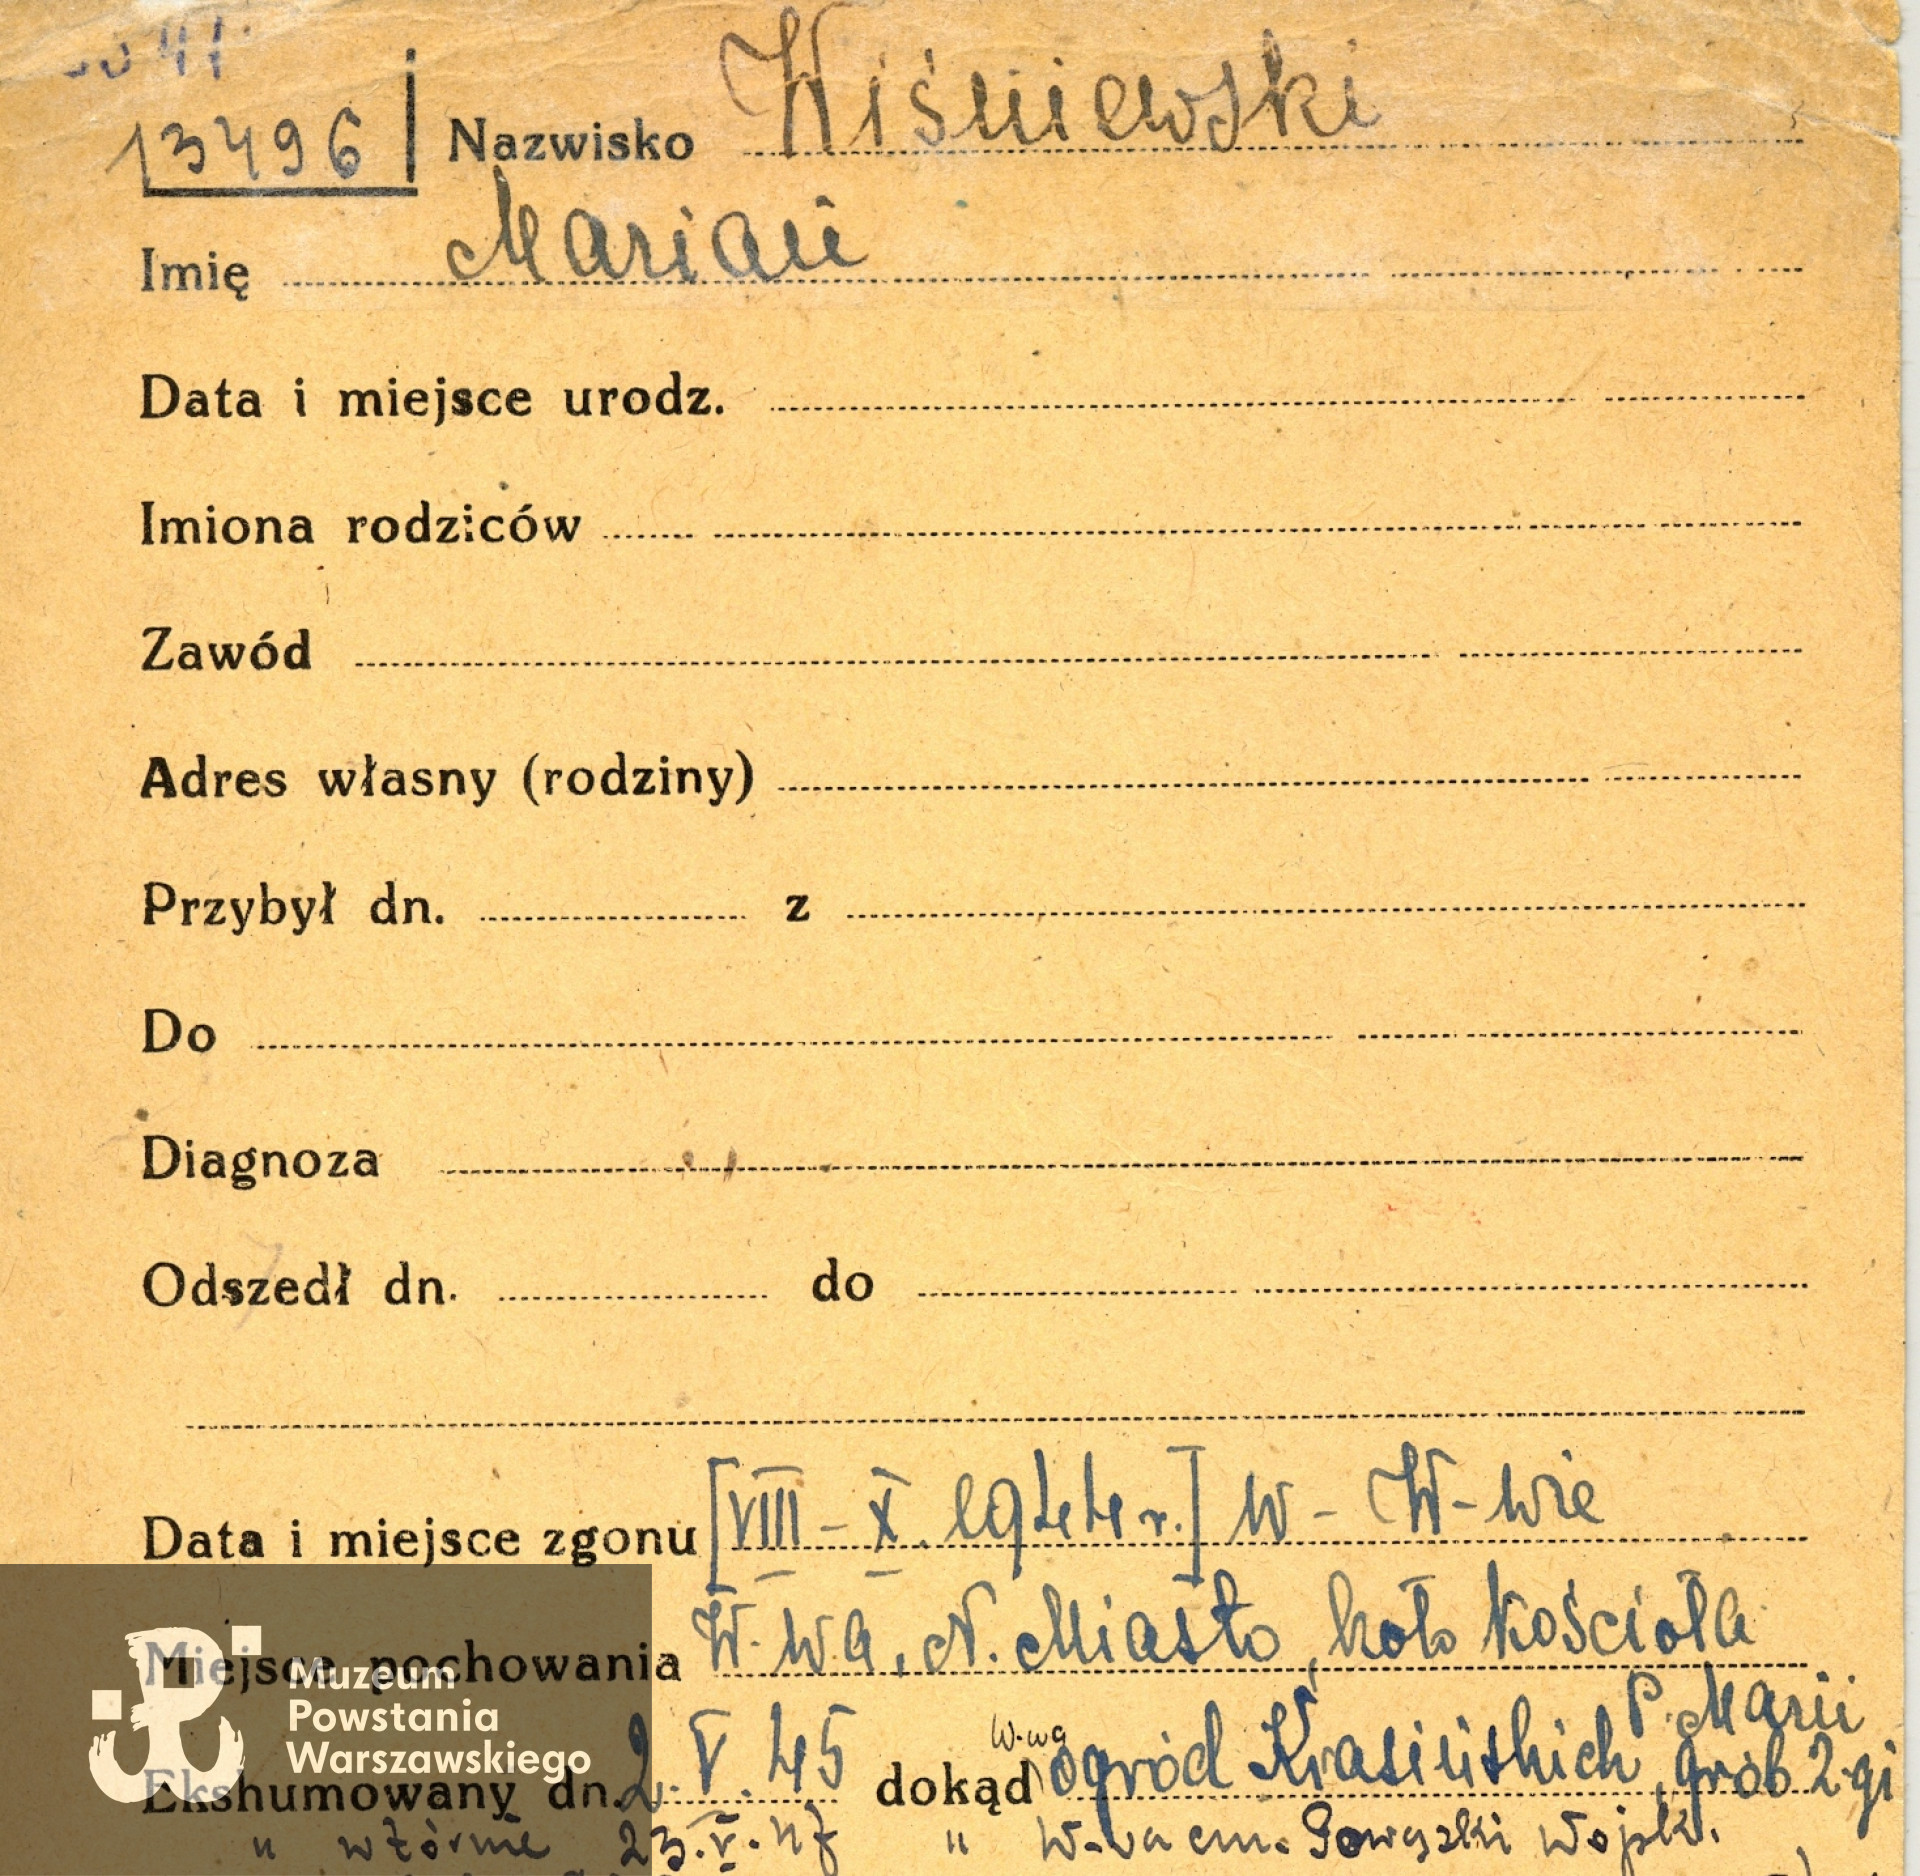 13496
Nazwisko Wiśniewski
Imię Marian
Data i miejsce urodz.
Imiona rodziców
Zawód
Adres własny (rodziny)
Przybył dn. z
Do
Diagnoza
Odszedł dn. do
Data i miejsce zgonu [VIII - X. 1944 r.] w - W-wie
Miejsce pochowania W-wa, N. Miasto, koło kościoła
P. Marii
Ekshumowany dn. 2.V.45 dokąd W-wa ogród Krasińskich, grób 2-gi
" wtórnie 23.V.47 " W-wa cm. Powązki Wojsk.
Muzeum
Powstania
Warszawskiego